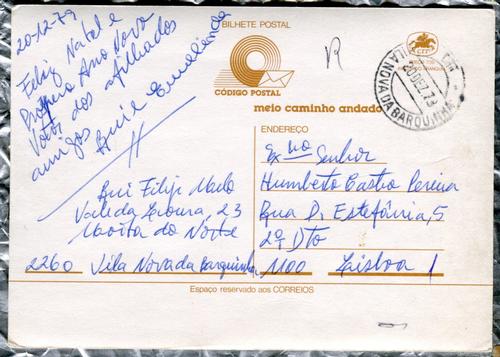 20-12-79
Feliz Natal e
Próspero Ano Novo
Votos dos afilhados
amigos Rui e Esmeralda
BILHETE POSTAL
CÓDIGO POSTAL
meio caminho andado
R
CTT
VILA NOVA DA BARQUINHA
20 DEZ. 79
ENDEREÇO
Exmo Senhor
Humberto Castro Pereira
Rua D. Estefânia, 5
2º Dto
1100 Lisboa 1
Rui Filipe
Vale da Loura, 23
Moita do Norte
2260 Vila Nova da Barquinha
Espaço reservado aos CORREIOS